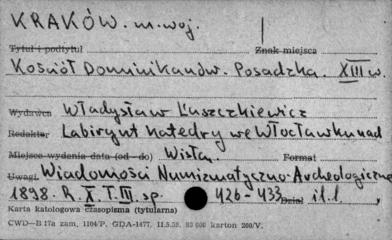 KRAKÓW. m. woj.
Tytuł i podtytuł Znak miejsca
Kościół Dominikanów. Posadzka. XIII w.
Wydawca Władysław Łuszczkiewicz
Redaktor Labirynt Katedry we Włocławku nad
Miejsce wydania data (od - do) Wisłą. Format
Uwagi Wiadomości Numizmatyczno-Archeologiczne
1898. R. X. T. III. sp. 426-433 Dział il. 1
Karta katologowa czasopisma (tytularna)
CWD-B 17a zam. 1104/P. GDA-1477. 11.5.53. 83 000 karton 200/V.